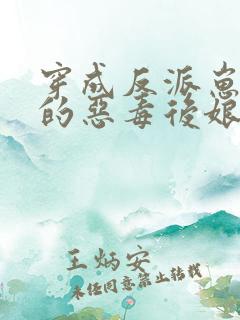 穿成反派崽
的惡毒後娘
王炳安
未经同意禁止转载